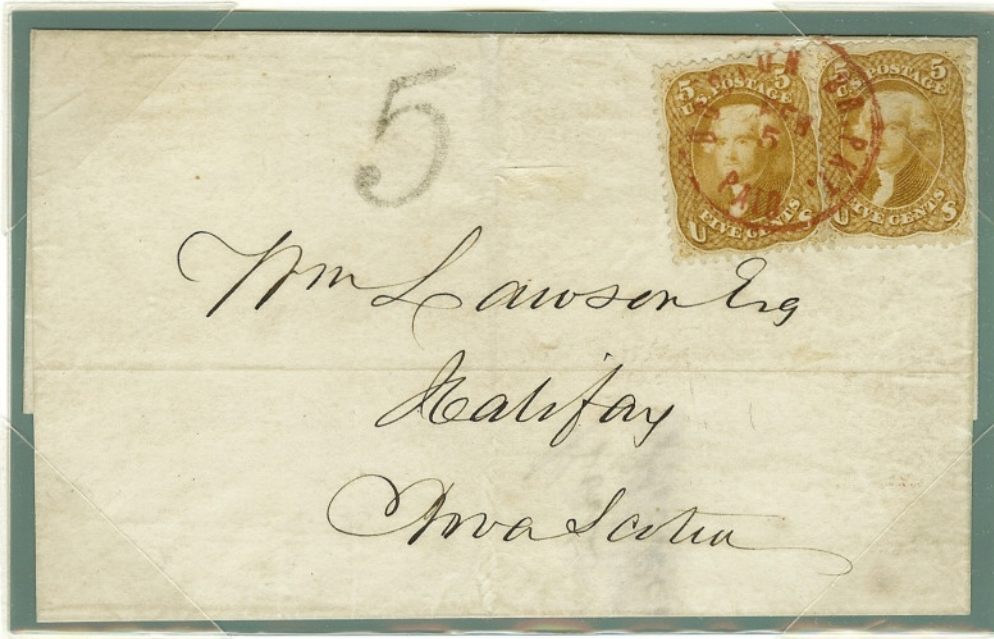 5
5 5
U.S. POSTAGE
FIVE CENTS
U S
5 5
U.S. POSTAGE
FIVE CENTS
U S
BR. PKT.
5
PAID
Wm Lawson Esq
Halifax
Nova Scotia